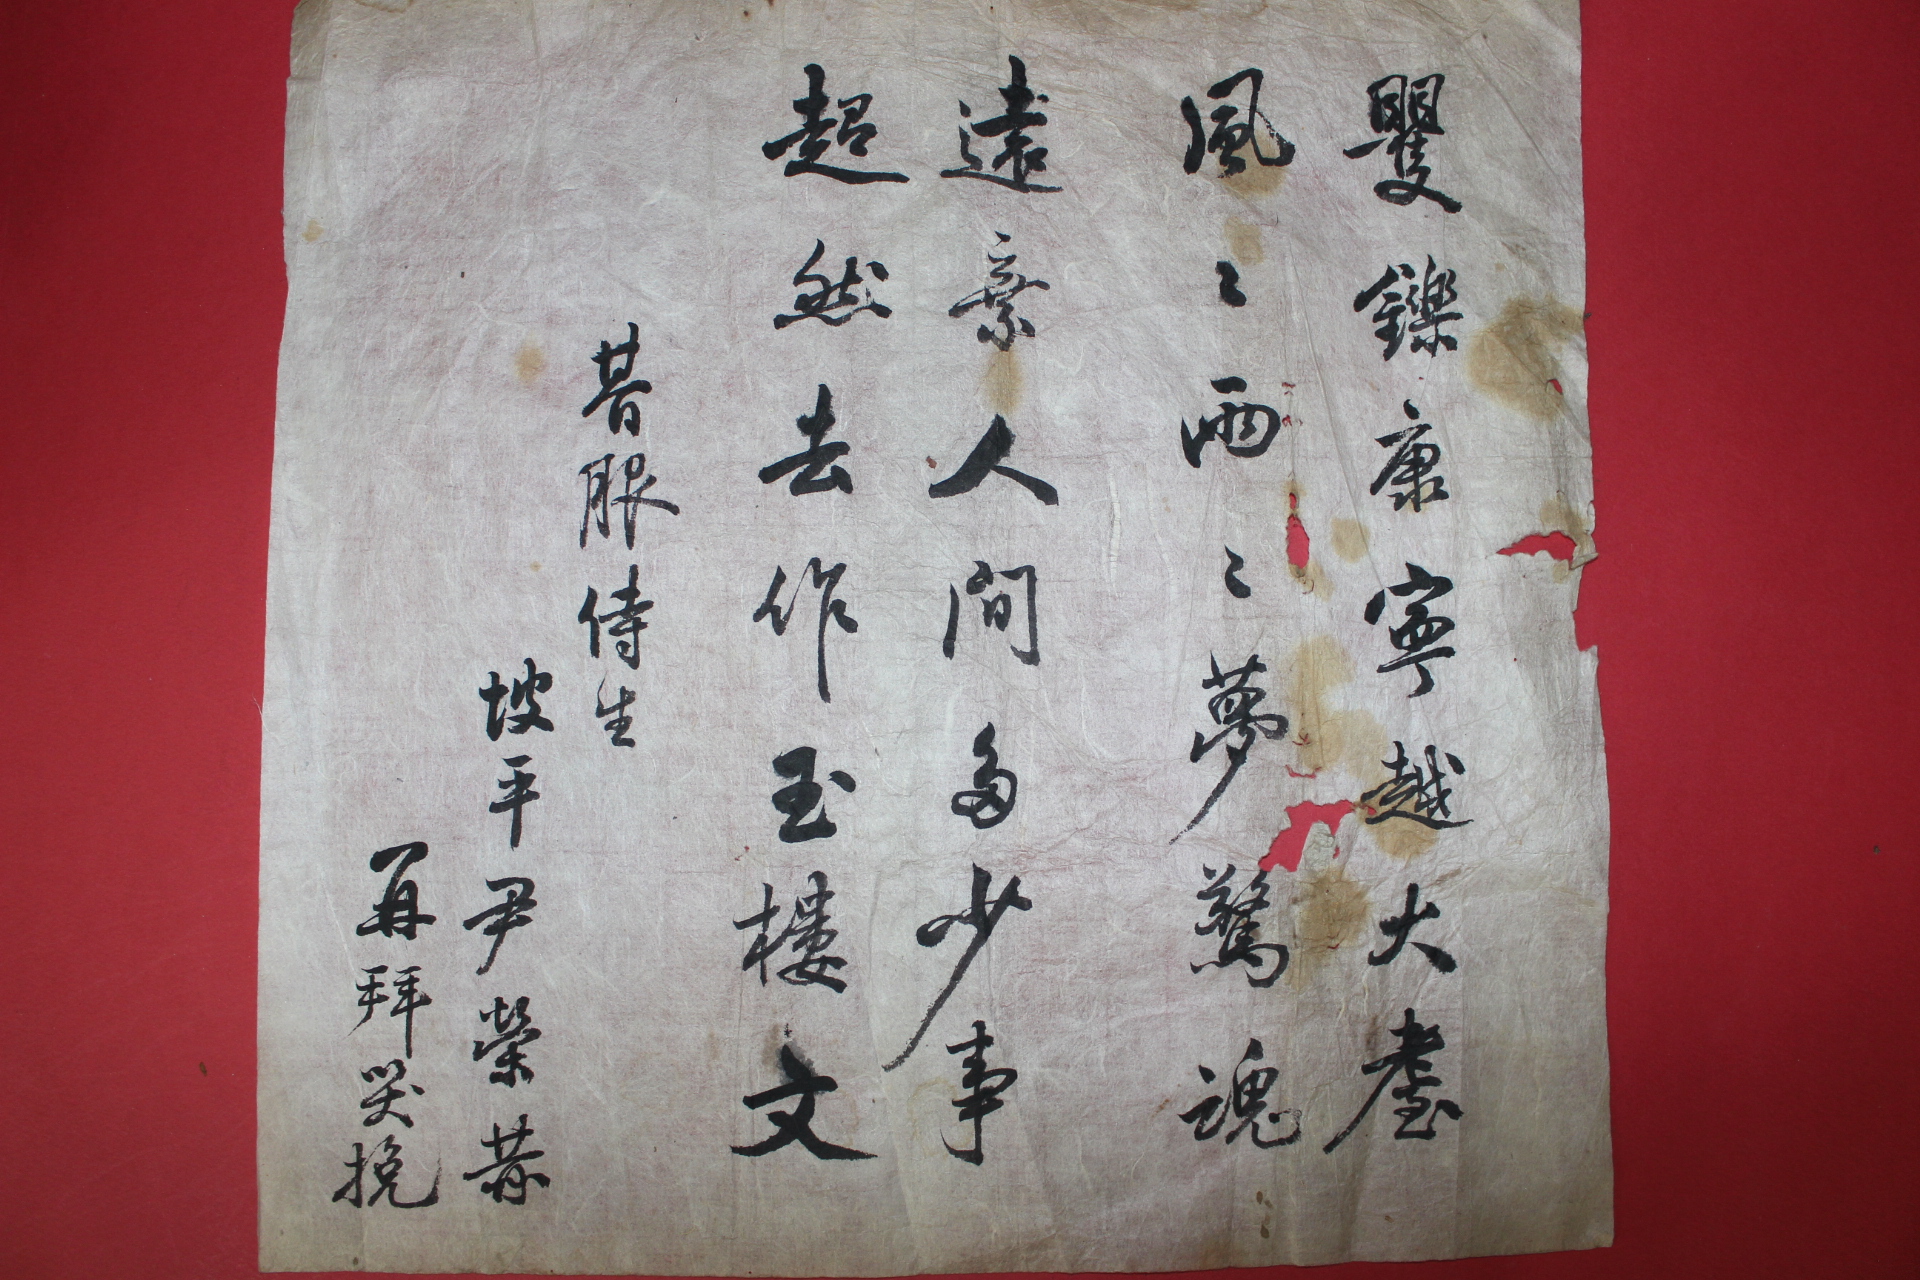 矍鑠康寧越大耋
風〻雨〻夢驚魂
遠棄人間多少事
超然去作玉樓文
朞服侍生
坡平尹榮恭
再拜哭挽